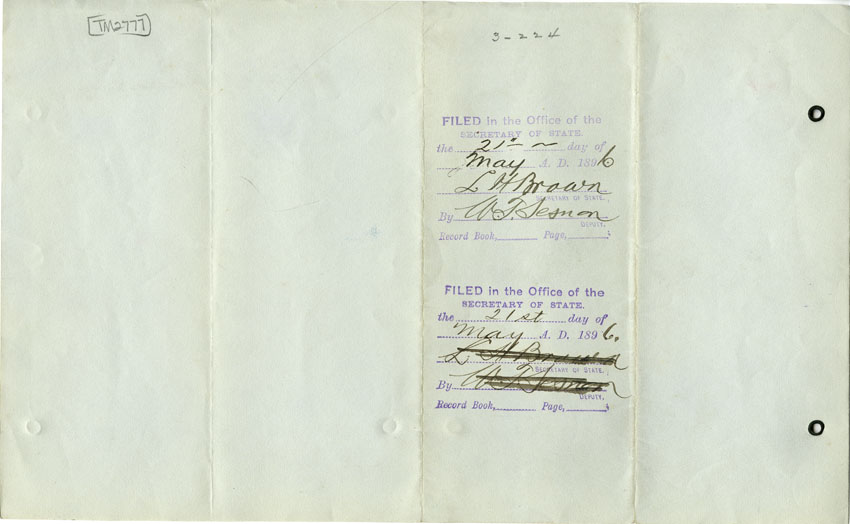 TM2777
3-224
FILED in the Office of the
SECRETARY OF STATE.
the 21st day of
May A. D. 1896
L H Brown
SECRETARY OF STATE.
By W. T. Sesnon
DEPUTY.
Record Book, Page,
FILED in the Office of the
SECRETARY OF STATE.
the 21st day of
May A. D. 1896.
L H Brown
SECRETARY OF STATE.
By W T Sesnon
DEPUTY.
Record Book, Page,